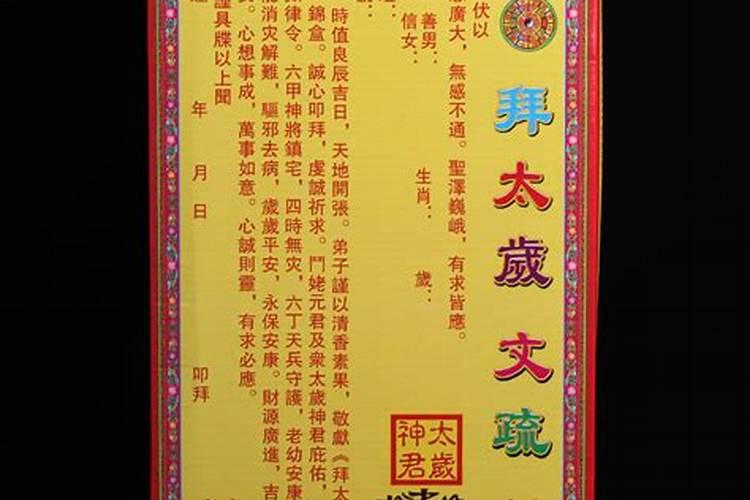 拜太歲文疏
太歲神君
伏以
廣大，無感不通。聖澤巍峨，有求皆應。
善男：
信女：
生肖：
歲：
時值良辰吉日，天地開張。弟子謹以清香素果，敬獻《拜太
錦盒。誠心叩拜，虔誠祈求。鬥姥元君及衆太歲神君庇佑，
律令。六甲神將鎮宅，四時無灾，六丁天兵守護，老幼安康
消灾解難，驅邪去病，歲歲平安，永保安康。財源廣進，吉
心想事成，萬事如意。心誠則靈，有求必應。
謹具牒以上聞
年
月
日
叩拜